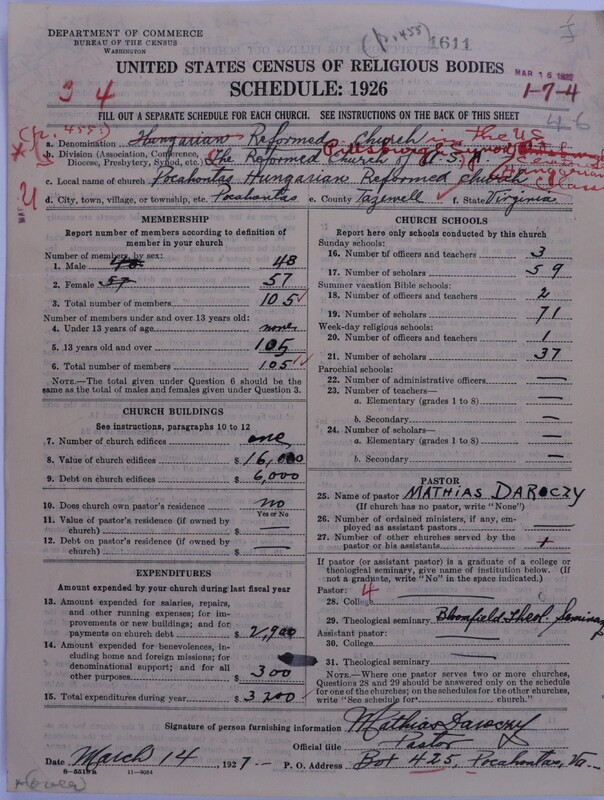 (p. 455)
1611
DEPARTMENT OF COMMERCE
BUREAU OF THE CENSUS
WASHINGTON
UNITED STATES CENSUS OF RELIGIOUS BODIES
SCHEDULE: 1926
3 4
MAR 16
1-7-4
FILL OUT A SEPARATE SCHEDULE FOR EACH CHURCH. SEE INSTRUCTIONS ON THE BACK OF THIS SHEET
46
(p. 455)
a. Denomination Hungarian Reformed Church in the US
b. Division (Association, Conference, Diocese, Presbytery, Synod, etc.) The Reformed Church of U.S.A. Pittsburgh Synod
c. Local name of church Pocahontas Hungarian Reformed church
d. City, town, village, or township, etc. Pocahontas e. County Tazewell f. State Virginia
MEMBERSHIP
Report number of members according to definition of member in your church
Number of members by sex:
1. Male 48 48
2. Female 57 57
3. Total number of members 105
Number of members under and over 13 years old:
4. Under 13 years of age none
5. 13 years old and over 105
6. Total number of members 105
NOTE.—The total given under Question 6 should be the same as the total of males and females given under Question 3.
CHURCH BUILDINGS
See instructions, paragraphs 10 to 12
7. Number of church edifices one
8. Value of church edifices $ 16,000
9. Debt on church edifices $ 6,000
10. Does church own pastor's residence no
Yes or No
11. Value of pastor's residence (if owned by church) $ —
12. Debt on pastor's residence (if owned by church) $ —
EXPENDITURES
Amount expended by your church during last fiscal year
13. Amount expended for salaries, repairs, and other running expenses; for improvements or new buildings; and for payments on church debt $ 2,900
14. Amount expended for benevolences, including home and foreign missions; for denominational support; and for all other purposes $ 300
15. Total expenditures during year $ 3200
CHURCH SCHOOLS
Report here only schools conducted by this church
Sunday schools:
16. Number of officers and teachers 3
17. Number of scholars 59
Summer vacation Bible schools:
18. Number of officers and teachers 2
19. Number of scholars 71
Week-day religious schools:
20. Number of officers and teachers 1
21. Number of scholars 37
Parochial schools:
22. Number of administrative officers —
23. Number of teachers—
a. Elementary (grades 1 to 8) —
b. Secondary —
24. Number of scholars—
a. Elementary (grades 1 to 8) —
b. Secondary —
PASTOR
25. Name of pastor MATHIAS DAROCZY
(If church has no pastor, write "None")
26. Number of ordained ministers, if any, employed as assistant pastors —
27. Number of other churches served by the pastor or his assistants
If pastor (or assistant pastor) is a graduate of a college or theological seminary, give name of institution below. (If not a graduate, write "No" in the space indicated.)
Pastor: 4
28. College —
29. Theological seminary Bloomfield Theol. Seminary
Assistant pastor:
30. College —
31. Theological seminary —
NOTE.—Where one pastor serves two or more churches, Questions 28 and 29 should be answered only on the schedule for one of the churches; on the schedules for the other churches, write "See schedule for church."
Signature of person furnishing information Mathias Daroczy
Official title Pastor
Date March 14 1927.— P. O. Address Box 425, Pocahontas, Va.—
8—5518 B 11—9054
(over)